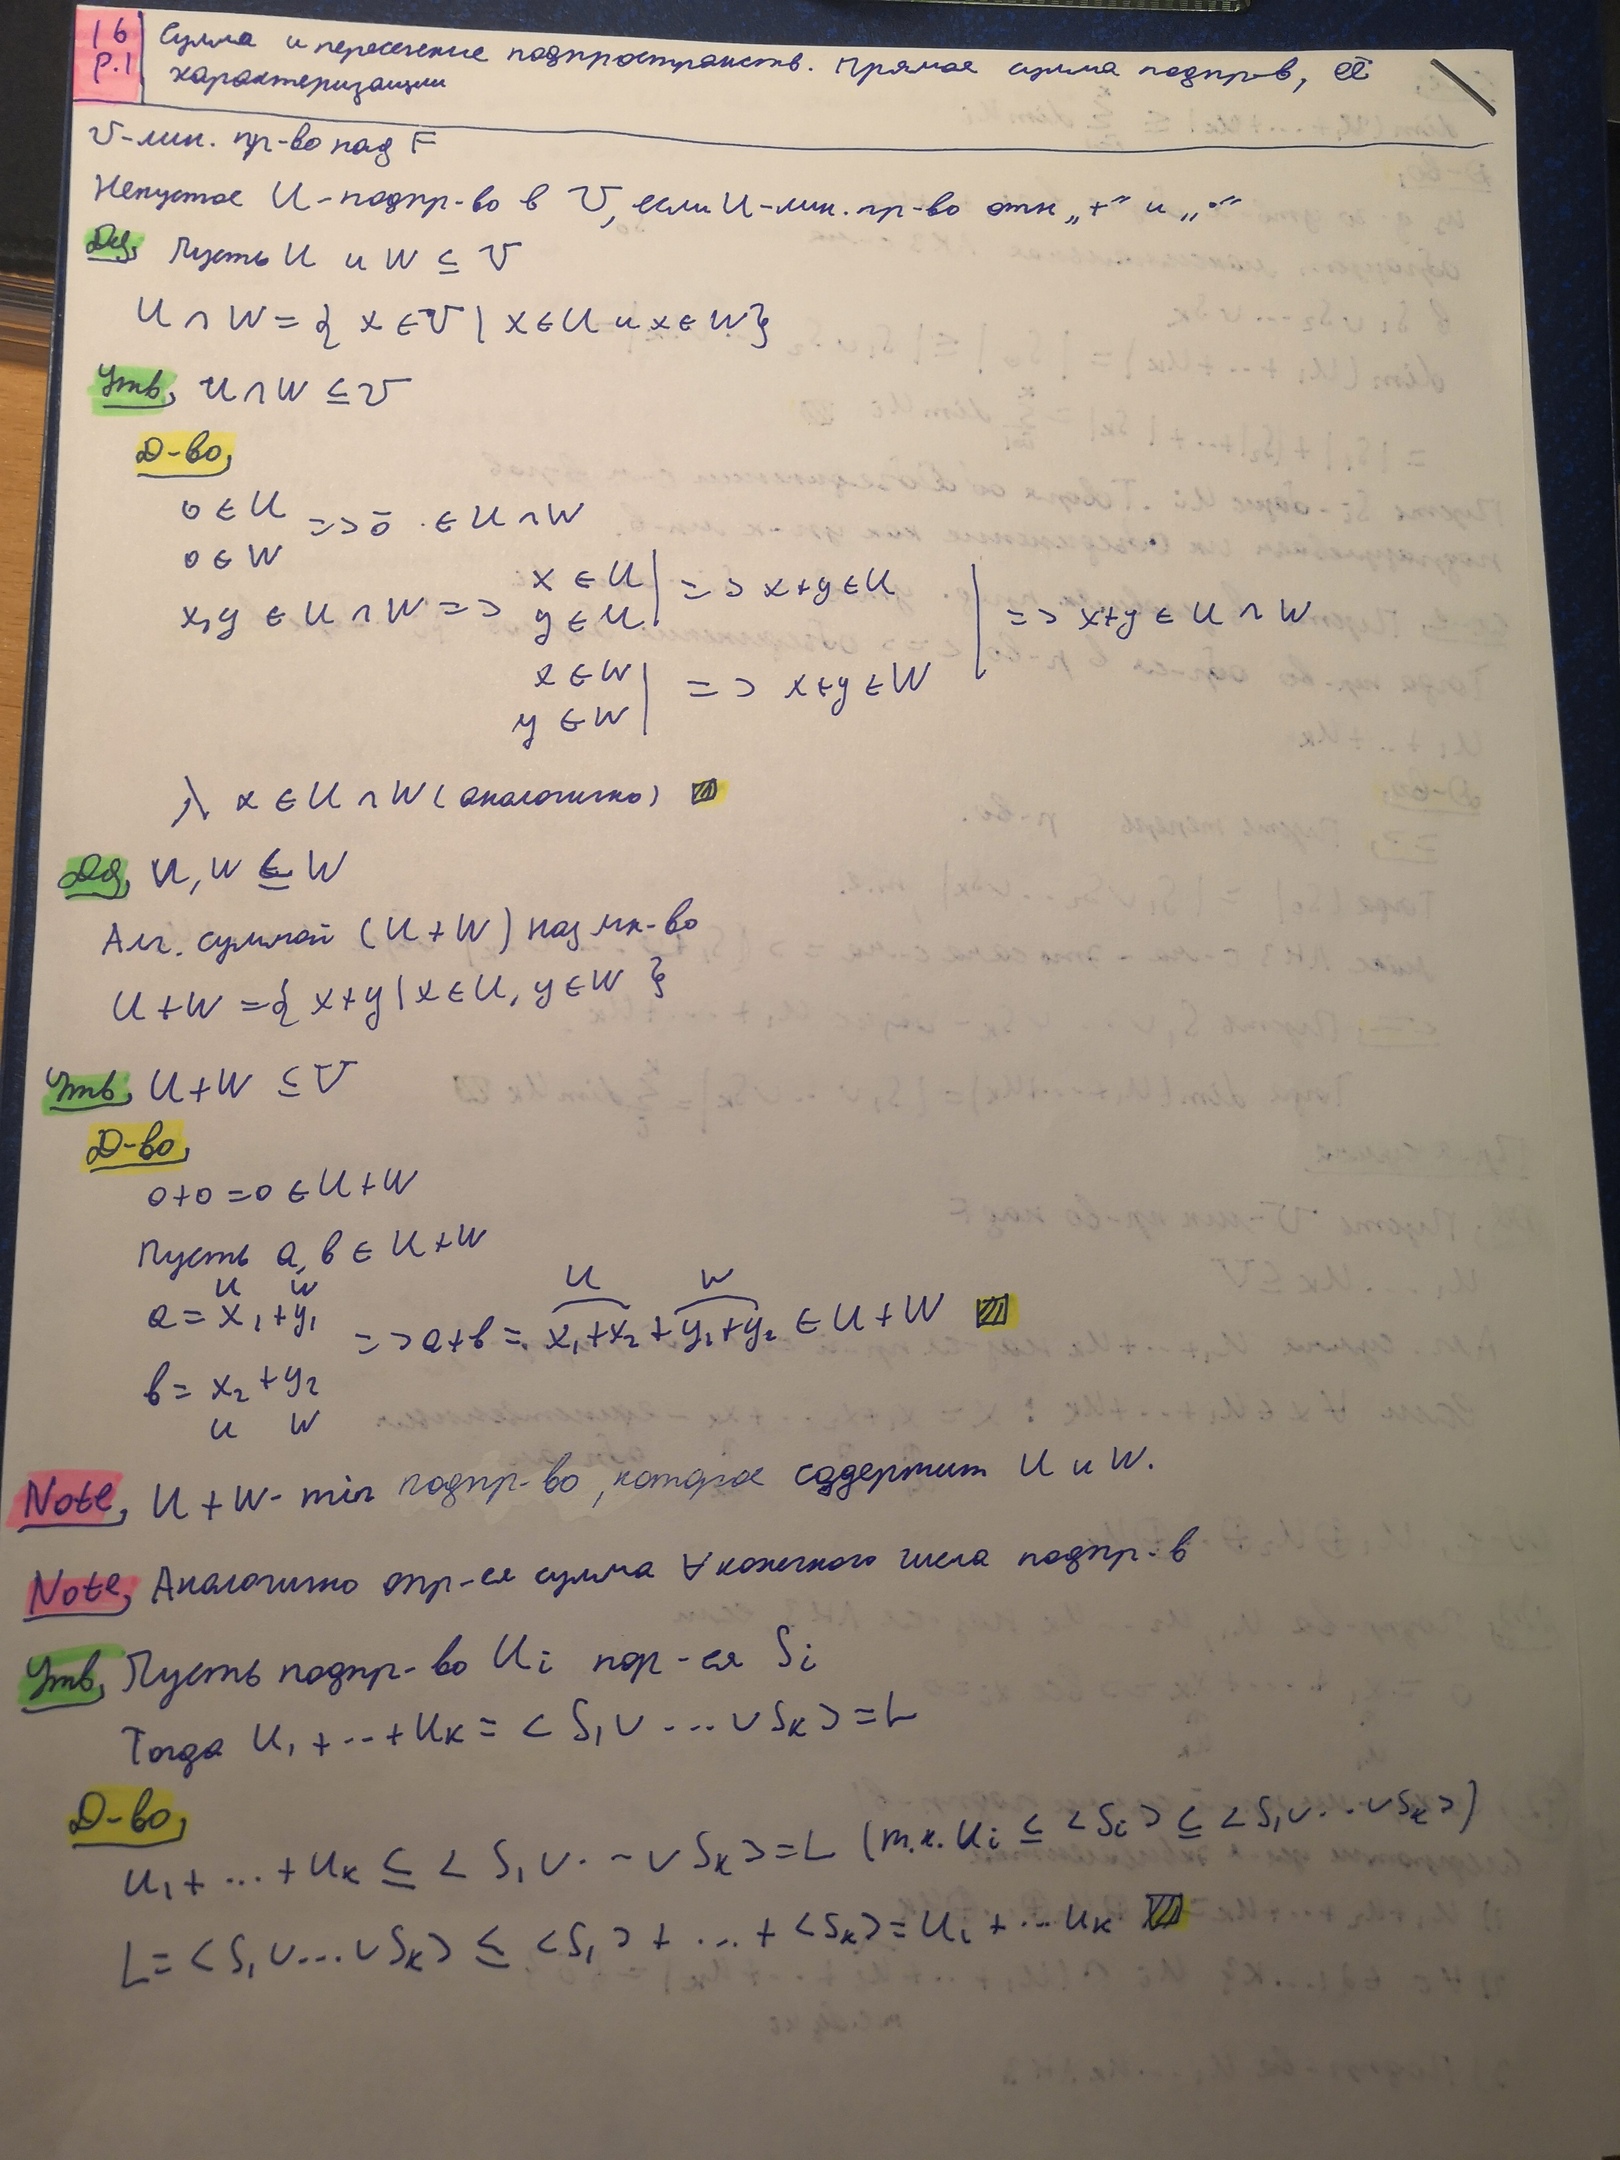 16 р.1
Сумма и пересечение подпространств. Прямая сумма подпр-в, её
характеризации
V-лин. пр-во над F
Непустое U-подпр-во в V, если U-лин. пр-во отн „+“ и „·“
Def. Пусть U и W ⊆ V
U ∩ W = { x ∈ V | x ∈ U и x ∈ W }
Утв. U ∩ W ⊆ V
Д-во,
0 ∈ U
0 ∈ W => 0̄ ∈ U ∩ W
x ∈ U | => x+y ∈ U
x,y ∈ U ∩ W => y ∈ U | => x+y ∈ U ∩ W
x ∈ W | => x+y ∈ W
y ∈ W |
λ x ∈ U ∩ W (аналогично) ▨
U, W ⊆ W
Алг. суммой (U+W) наз мн-во
U+W = { x+y | x ∈ U, y ∈ W }
Утв. U+W ⊆ V
Д-во,
0+0=0 ∈ U+W
Пусть a, b ∈ U+W
U W U W
a = x₁+y₁ => a+b = x₁+x₂ + y₁+y₂ ∈ U+W ▨
b = x₂+y₂
U W
Note, U+W- min подпр-во, которое содержит U и W.
Note, Аналогично опр-ся сумма ∀ конечного числа подпр-в
Утв, Пусть подпр-во Uᵢ пор-ся Sᵢ
Тогда U₁ + ... + Uₖ = < S₁ ∪ ... ∪ Sₖ > = L
Д-во,
U₁ + ... + Uₖ ⊆ < S₁ ∪ ... ∪ Sₖ > = L (т.к. Uᵢ ⊆ <Sᵢ> ⊆ <S₁ ∪ ... ∪ Sₖ>)
L = <S₁ ∪ ... ∪ Sₖ> ⊆ <S₁> + ... + <Sₖ> = Uᵢ + ... Uₖ ▨